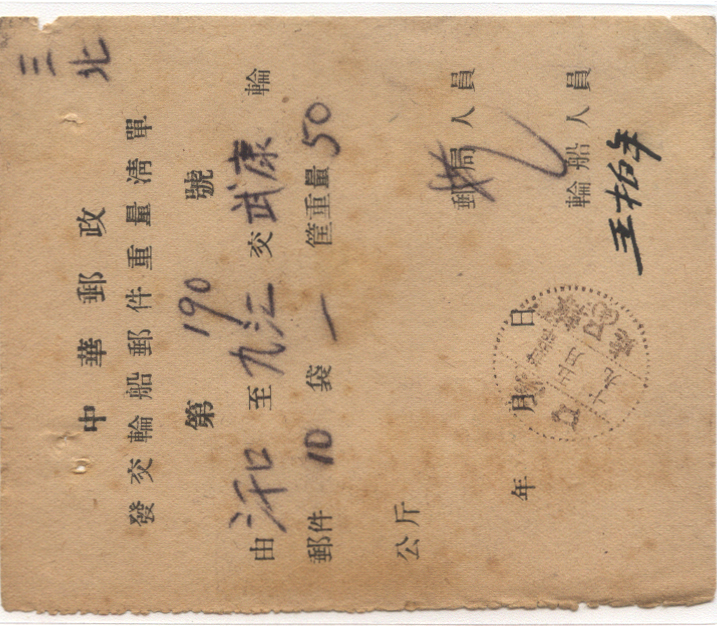 三北
中華郵政
發交輪船郵件重量清單
第190號
由汗口至九江交武康輪
郵件10袋一筐重量50
公斤
郵局人員
輪船人員
年月日